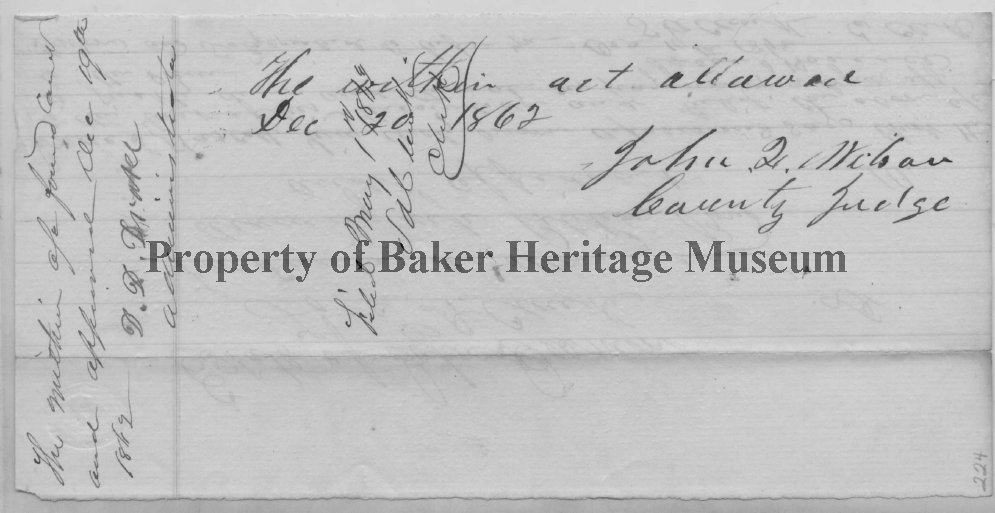 The within act allowed
Dec 20th 1862
John Q. Wilson
County Judge
Filed May 1st 1849
Clerk
The within a/c found correct
and approved Dec 19th
1862
administrator
Property of Baker Heritage Museum
224